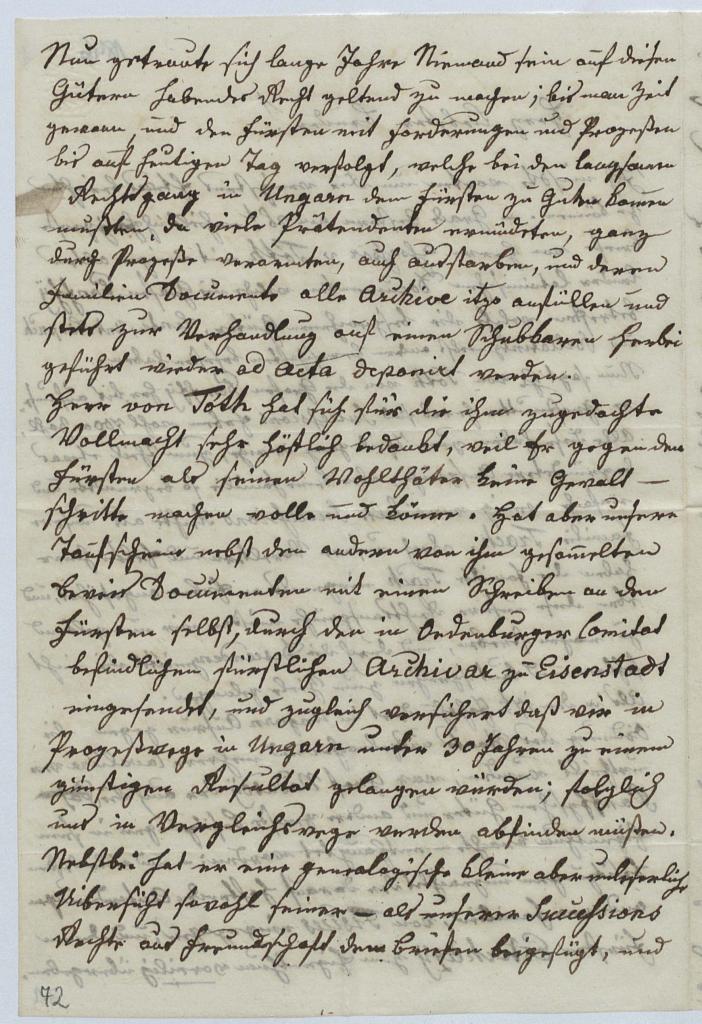 Nun getraute sich lange Jahre Niemand sein auf diesen
Gütern habendes Recht geltend zu machen; bis man Zeit
gewann, und den Fürsten mit Forderungen und Prozeßen
bis auf heutigen Tag verfolgt, welche bei den langsamen
Rechtsgang in Ungarn dem Fürsten zu Guten kommen
mußten, da viele Prätendenten ermüdeten, ganz
durch Prozeße verarmten, auch ausstarben, und deren
Familien Documente alle Archive itzo anfüllen und
stets zur Verhandlung auf einen Schubkaren herbei
geführt wieder ad acta deponirt werden.
Herr von Tóth hat sich für die ihm zugedachte
Vollmacht sehr höflich bedankt, weil Er gegen den
Fürsten als seinen Wohlthäter keine Gewalt –
schritte machen wolle und könne. Hat aber unsere
Taufscheine nebst den andern von ihm gesammelten
beweis Documenten mit einen Schreiben an den
Fürsten selbst, durch den in Oedenburger Comitat
befindlichen fürstlichen Archivar zu Eisenstadt
eingesendet, und zugleich versichert daß wir in
Prozeßwege in Ungarn unter 30 Jahren zu einem
günstigen Resultat gelangen würden; folglich
uns in Vergleichswege werden abfinden müßen.
Nebstbei hat er eine genealogische kleine aber unleserliche
Uibersicht sowohl seiner – als unserer Successions
Rechte aus Freundschaft dem Briefen beigefügt, und
72